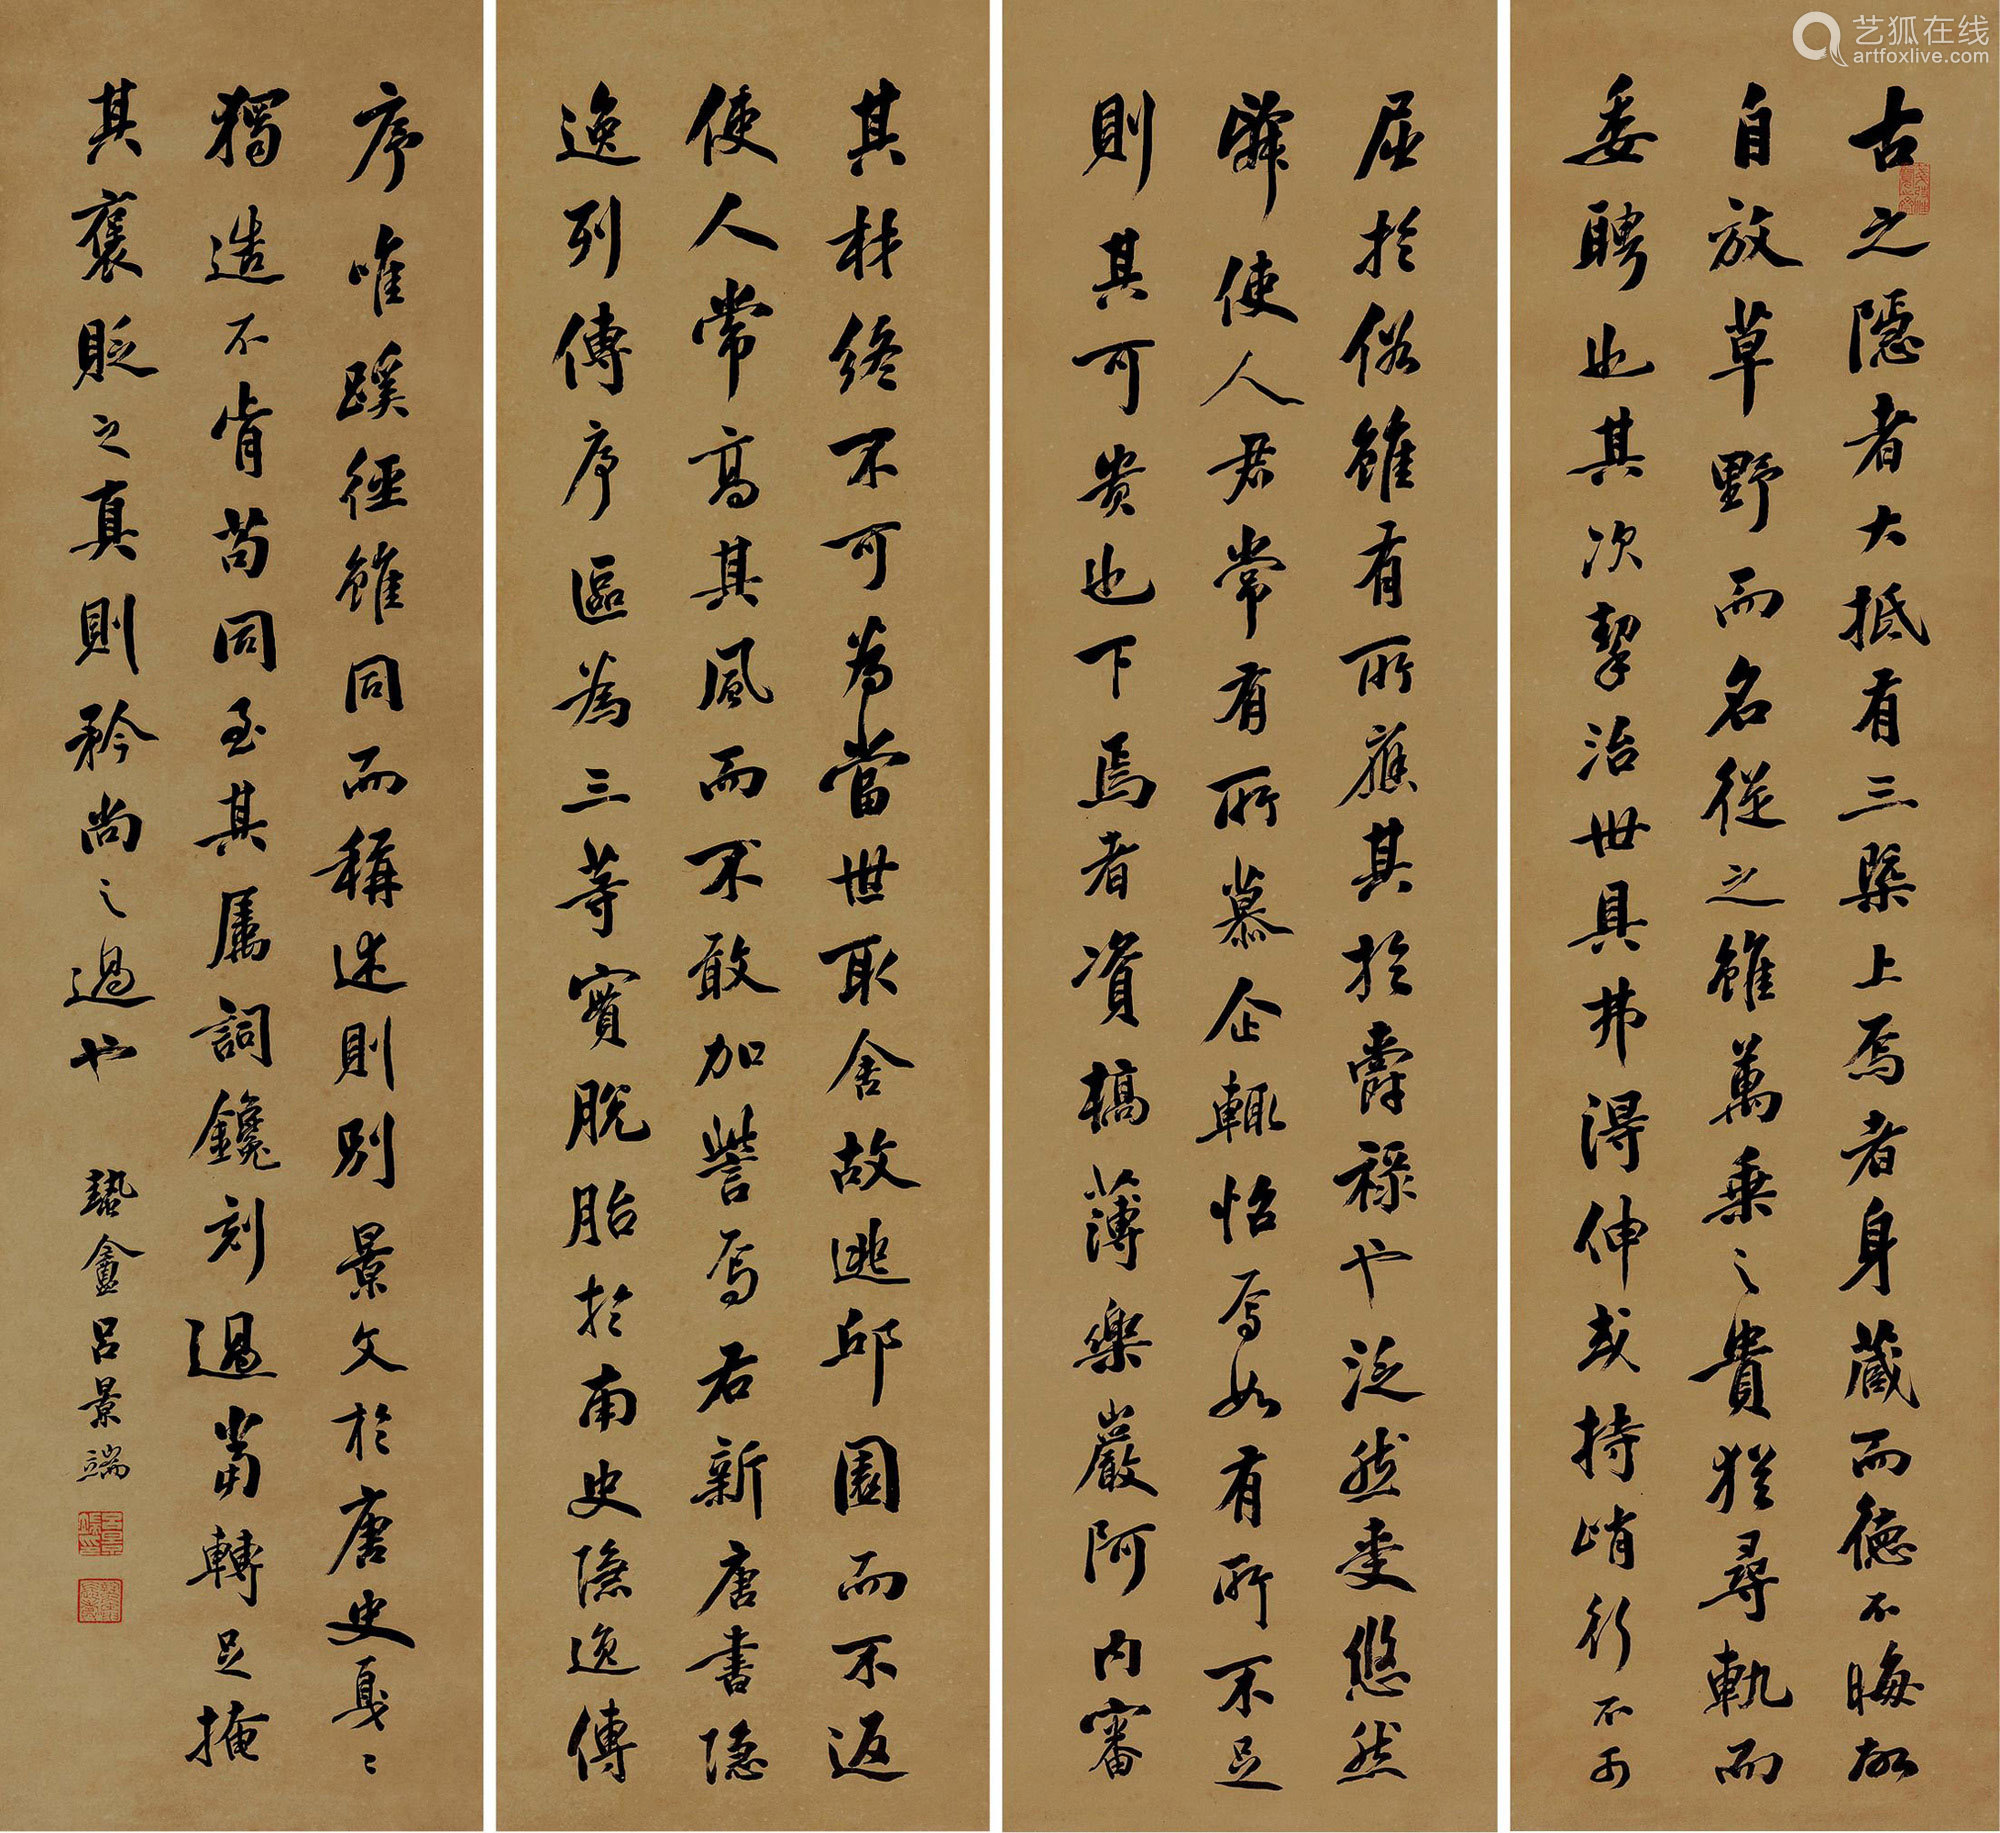 古之隱者大抵有三槩上焉者身藏而德不晦故
自放草野而名從之雖萬乘之貴猶尋軌而
委聘也其次挈治世具弗得伸或持峭行不可
屈於俗雖有所應其於爵祿也泛然受悠然
辭使人君常有所慕企輒怡焉如有所不足
則其可貴也下焉者資槁薄樂巖阿內審
其材終不可為當世取舍故逃邱園而不返
使人常高其風而不敢加訾焉右新唐書隐
逸列傳序區為三等實脫胎於南史隱逸傳
序唯蹊徑雖同而稱述則別景文於唐史戛〻
獨造不肯苟同至其屬詞鑱刻過當轉足掩
其褒貶之真則矜尚之過也
蟄盦呂景端
艺狐在线
artfoxlive.com